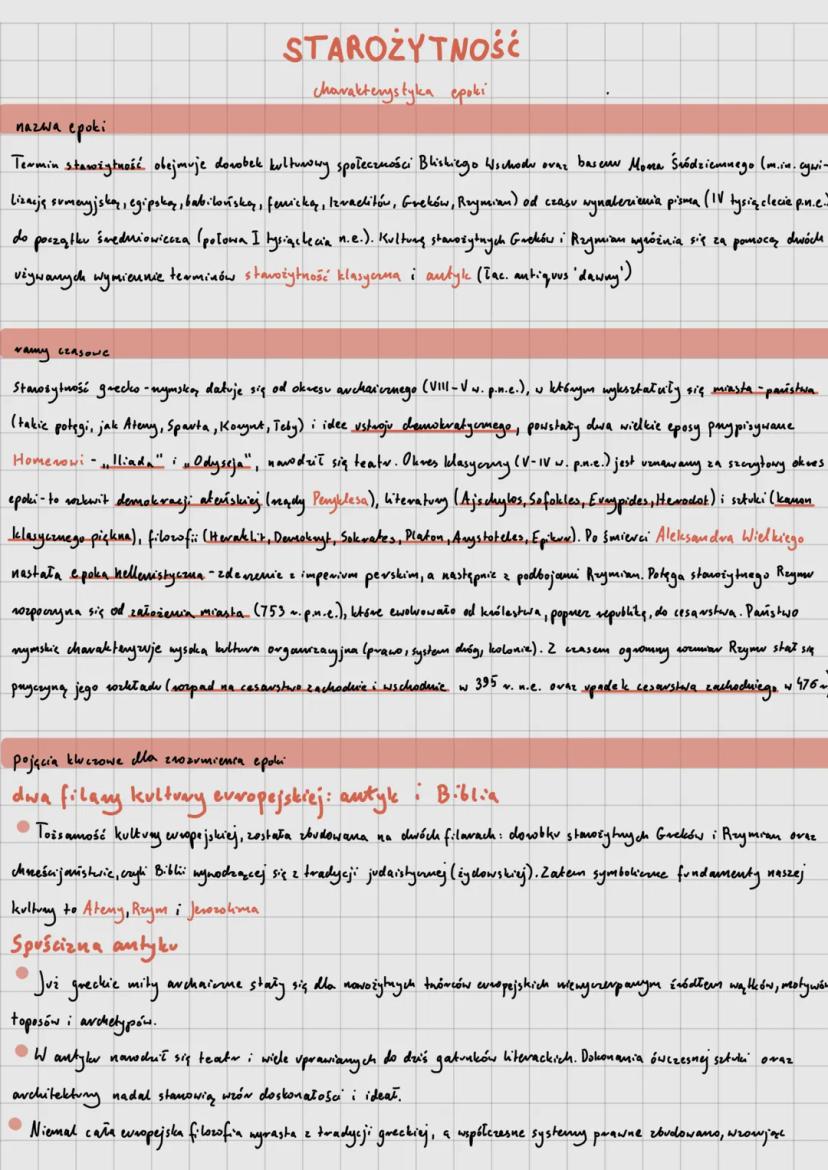 STAROŻYTNOŚĆ
charakterystyka epoki
nazwa epoki
Termin starożytność obejmuje dorobek kulturowy społeczności Bliskiego Wschodu oraz basenu Morza Śródziemnego (m.in. cywi-
lizację sumeryjską, egipską, babilońską, fenicką, Izraelitów, Greków, Rzymian) od czasu wynalezienia pisma (IV tysiąclecie p.n.e.)
do początku średniowiecza (połowa I tysiąclecia n.e.). Kulturę starożytnych Greków i Rzymian wyróżnia się za pomocą dwóch
używanych wymiennie terminów starożytność klasyczna i antyk (łac. antiquus 'dawny')
ramy czasowe
Starożytność grecko-rzymską datuje się od okresu archaicznego (VIII-V w. p.n.e.), w którym wykształciły się miasta-państwa
(takie potęgi, jak Ateny, Sparta, Korynt, Teby) i idee ustroju demokratycznego, powstały dwa wielkie eposy przypisywane
Homerowi - „Iliada" i „Odyseja", narodził się teatr. Okres klasyczny (V-IV w. p.n.e.) jest uznawany za szczytowy okres
epoki - to rozkwit demokracji ateńskiej (rządy Peryklesa), literatury (Ajschylos, Sofokles, Eurypides, Herodot) i sztuki (kanon
klasycznego piękna), filozofii (Heraklit, Demokryt, Sokrates, Platon, Arystoteles, Epikur). Po śmierci Aleksandra Wielkiego
nastała epoka hellenistyczna - zderzenie z imperium perskim, a następnie z podbojami Rzymian. Potęga starożytnego Rzymu
rozpoczyna się od założenia miasta (753 r. p.n.e.), które ewoluowało od królestwa, poprzez republikę, do cesarstwa. Państwo
rzymskie charakteryzuje wysoka kultura organizacyjna (prawo, system dróg, kolonie). Z czasem ogromny rozmiar Rzymu stał się
przyczyną jego rozkładu (rozpad na cesarstwo zachodnie i wschodnie w 395 r. n.e. oraz upadek cesarstwa zachodniego w 476 r
pojęcia kluczowe dla zrozumienia epoki
dwa filary kultury europejskiej: antyk i Biblia
Tożsamość kultury europejskiej, została zbudowana na dwóch filarach: dorobku starożytnych Greków i Rzymian oraz
chrześcijaństwie, czyli Biblii wywodzącej się z tradycji judaistycznej (żydowskiej). Zatem symboliczne fundamenty naszej
kultury to Ateny, Rzym i Jerozolima
Spuścizna antyku
Już greckie mity archaiczne stały się dla nowożytnych twórców europejskich niewyczerpanym źródłem wątków, motywów
toposów i archetypów.
W antyku narodził się teatr i wiele uprawianych do dziś gatunków literackich. Dokonania ówczesnej sztuki oraz
architektury nadal stanowią wzór doskonałości i ideał.
Niemal cała europejska filozofia wyrasta z tradycji greckiej, a współczesne systemy prawne zbudowano, wzorując